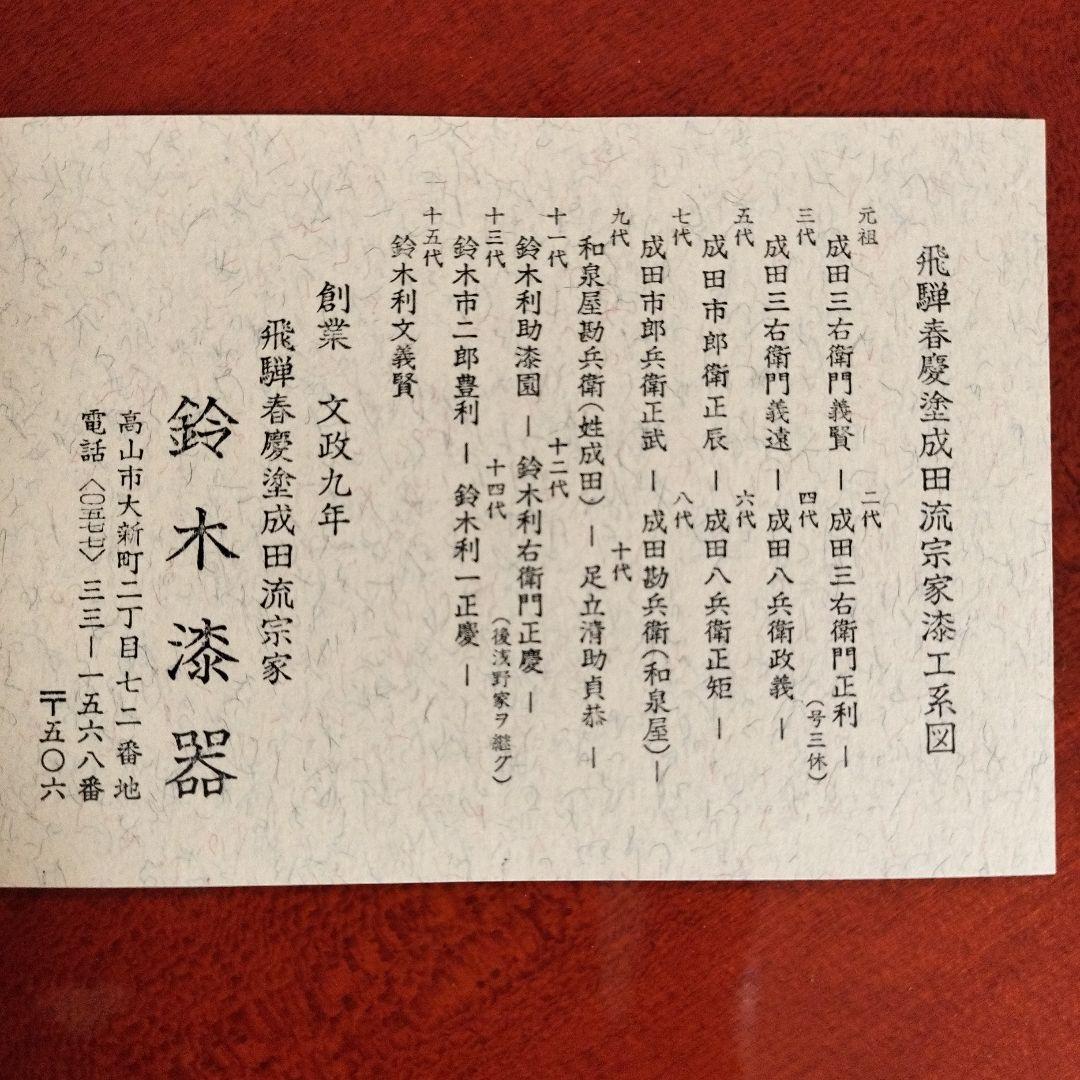 飛騨春慶塗成田流宗家漆工系図
元祖 二代
成田三右衛門義賢 ― 成田三右衛門正利 ―
(号三休)
三代 四代
成田三右衛門義遠 ― 成田八兵衛政義 ―
五代 六代
成田市郎衛正辰 ― 成田八兵衛正矩 ―
七代 八代
成田市郎兵衛正武 ― 成田勘兵衛(和泉屋) ―
九代 十代
和泉屋勘兵衛(姓成田) ― 足立清助貞恭 ―
十一代 十二代
鈴木利助漆園 ― 鈴木利右衛門正慶 ―
(後浅野家ヲ継グ)
十三代 十四代
鈴木市二郎豊利 ― 鈴木利一正慶 ―
十五代
鈴木利文義賢
創業 文政九年
飛騨春慶塗成田流宗家
鈴木漆器
高山市大新町二丁目七二番地
電話〈〇五七七〉三三―一五六八番
〒五〇六